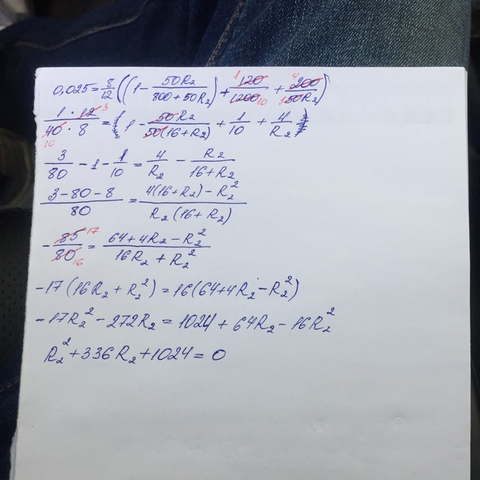 0,025 = 8/12 ((1 - 50R₂/(800+50R₂)) + 120/1200 + 200/50R₂) 1 10 4
1·12/40·8 = (1 - 50R₂/50(16+R₂) + 1/10 + 4/R₂) 3 10
3/80 - 1 - 1/10 = 4/R₂ - R₂/(16+R₂)
(3-80-8)/80 = (4(16+R₂) - R₂²)/(R₂(16+R₂))
-85/80 = (64+4R₂-R₂²)/(16R₂+R₂²) 17 16
-17(16R₂+R₂²) = 16(64+4R₂-R₂²)
-17R₂² - 272R₂ = 1024 + 64R₂ - 16R₂²
R₂² + 336R₂ + 1024 = 0